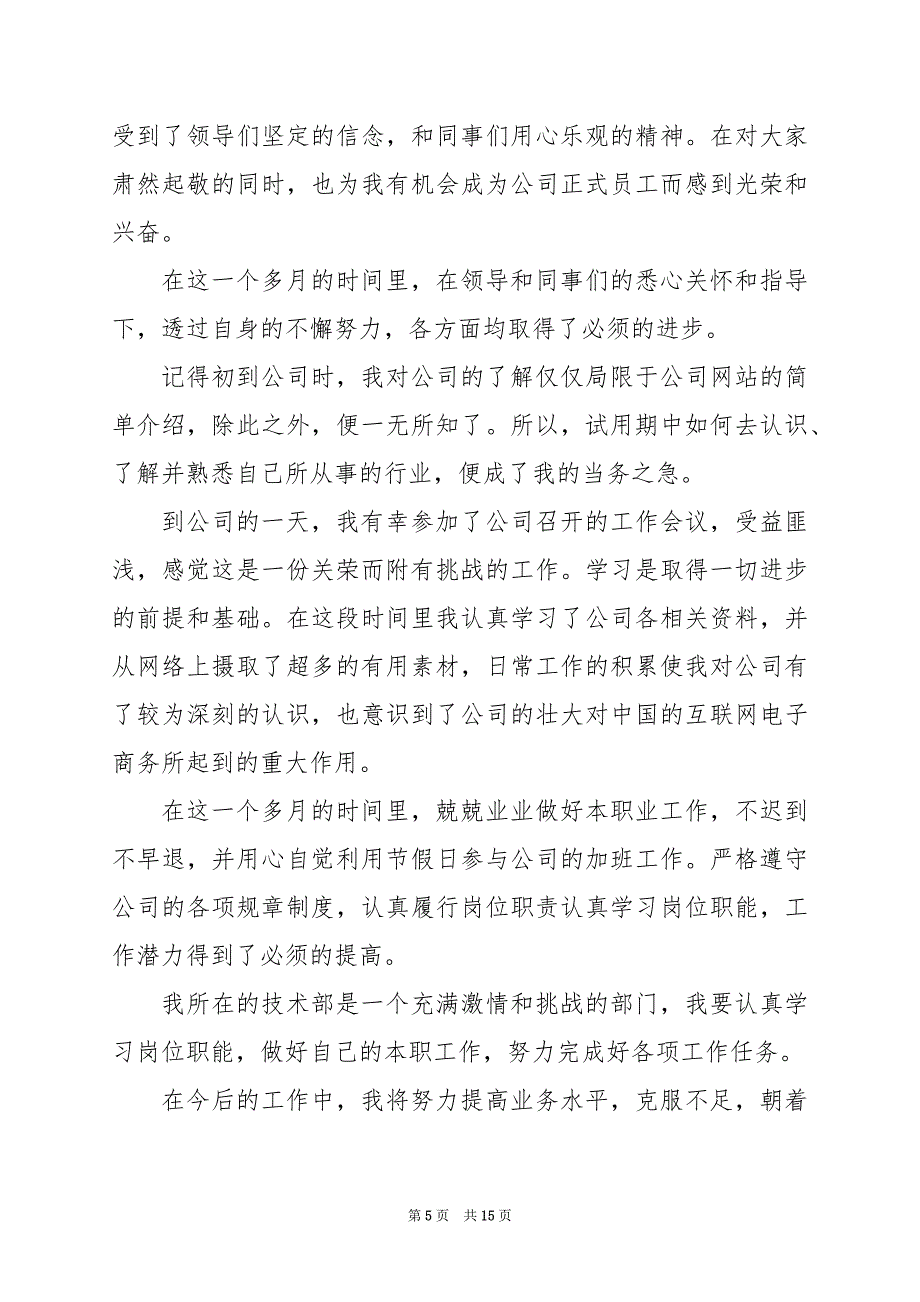 受到了领导们坚定的信念，和同事们用心乐观的精神。在对大家
肃然起敬的同时，也为我有机会成为公司正式员工而感到光荣和
兴奋。
在这一个多月的时间里，在领导和同事们的悉心关怀和指导
下，透过自身的不懈努力，各方面均取得了必须的进步。
记得初到公司时，我对公司的了解仅仅局限于公司网站的简
单介绍，除此之外，便一无所知了。所以，试用期中如何去认识、
了解并熟悉自己所从事的行业，便成了我的当务之急。
到公司的一天，我有幸参加了公司召开的工作会议，受益匪
浅，感觉这是一份关荣而附有挑战的工作。学习是取得一切进步
的前提和基础。在这段时间里我认真学习了公司各相关资料，并
从网络上摄取了超多的有用素材，日常工作的积累使我对公司有
了较为深刻的认识，也意识到了公司的壮大对中国的互联网电子
商务所起到的重大作用。
在这一个多月的时间里，兢兢业业做好本职业工作，不迟到
不早退，并用心自觉利用节假日参与公司的加班工作。严格遵守
公司的各项规章制度，认真履行岗位职责认真学习岗位职能，工
作潜力得到了必须的提高。
我所在的技术部是一个充满激情和挑战的部门，我要认真学
习岗位职能，做好自己的本职工作，努力完成好各项工作任务。
在今后的工作中，我将努力提高业务水平，克服不足，朝着
第 5 页 共 15 页